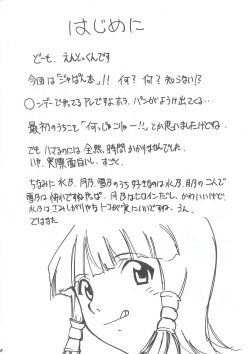 はじめに
どーも、えんどっくんです
今回は「じゃぱん本」!! 何? 何? 知らない!?
〇ンデーで来てる アレですよ、ホラ、パンがよう出てくる…
最初のうちこそ「何っじゃこりゃー!!」とか思いましたけどね。
でも ハマるのには 全然、時間かかりませんでした。
いや、実際面白いし、すごく。
ちなみに 水乃、月乃、雪乃のうち 好きなのは水乃、月乃の二人で
雪乃は 怖いですねやっぱ。 月乃はヒロインだし、かわいいけど、
水乃はさみしがりやな トコが実にいいですね。 うん。
ではまた